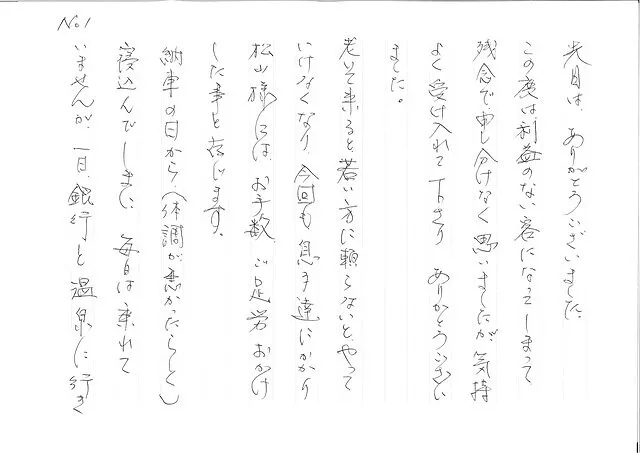 No1
先日は、ありがとうございました。
この度は利益のない客になってしまって
残念で、申し分けなく思いましたが、気持
よく受け入れて下さり ありがとうござい
ました。
老いて来ると、若い方に頼らないと、やって
いけなくなり、今回も息子達にかかり
松山様には、お手数、ご足労おかけ
した事と存じます。
納車の日から、(体調が悪かったらしく)
寝込んでしまい 毎日は乗れて
いませんが、一日、銀行と温泉に行き